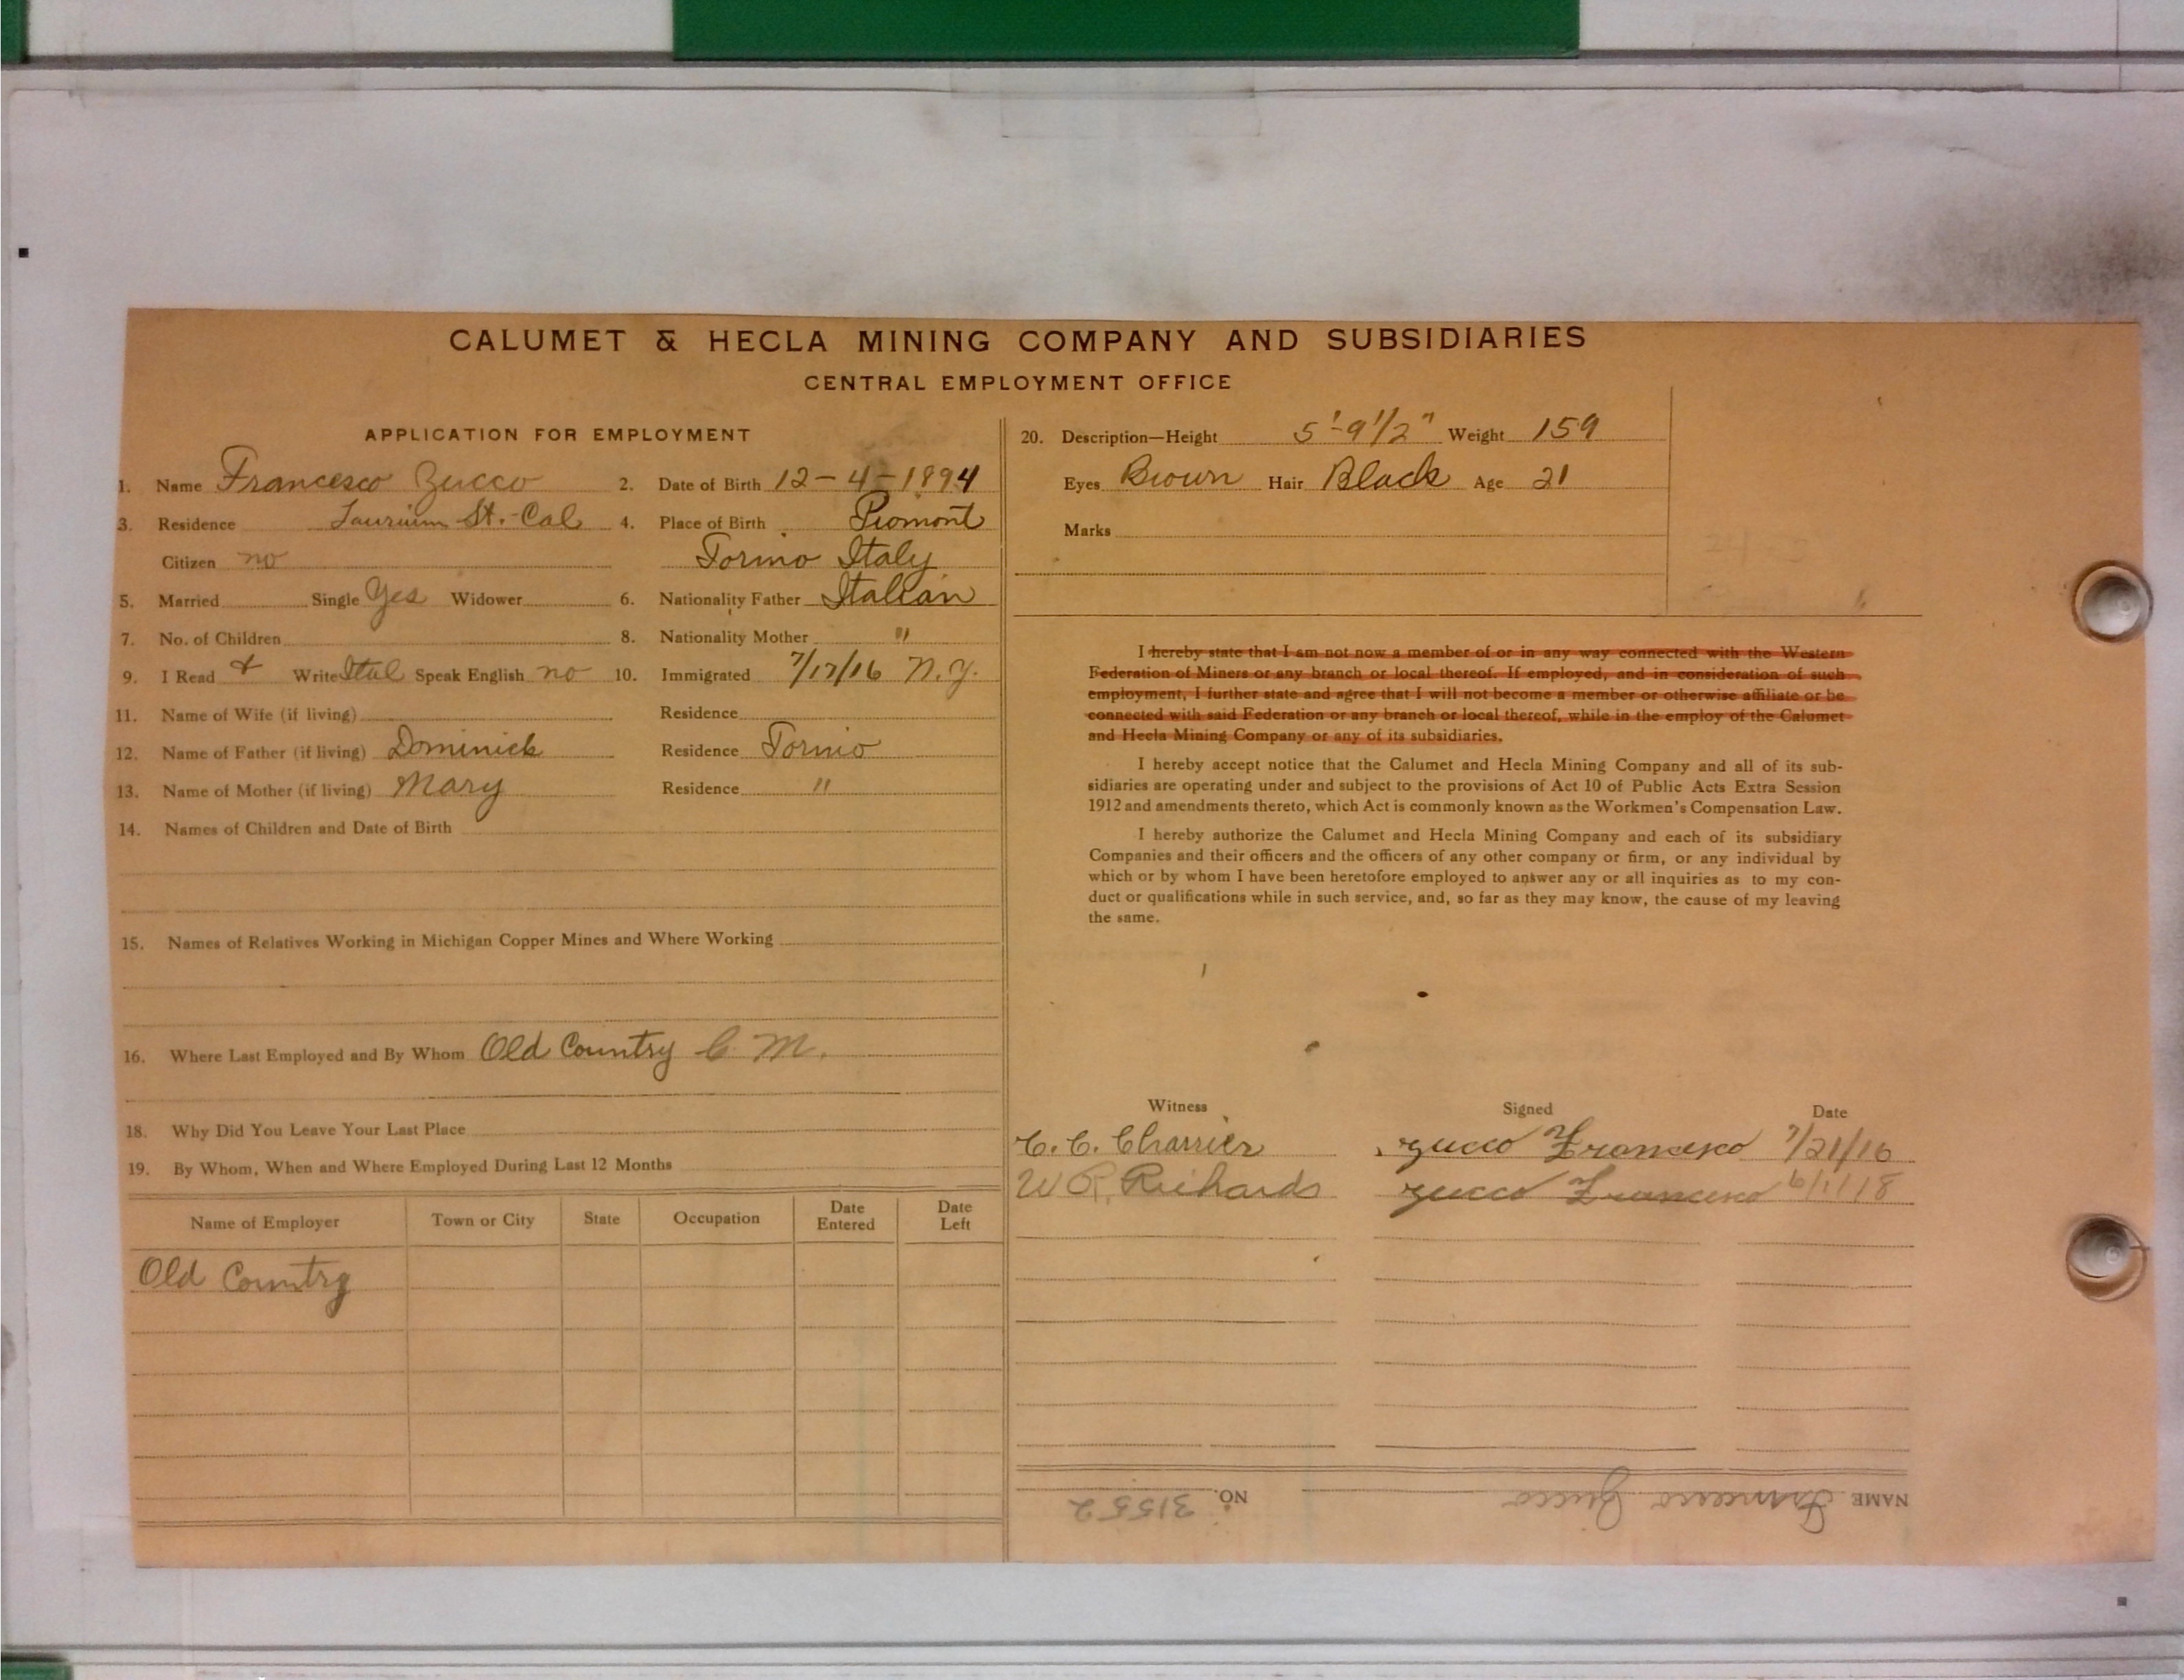 CALUMET & HECLA MINING COMPANY AND SUBSIDIARIES
CENTRAL EMPLOYMENT OFFICE
APPLICATION FOR EMPLOYMENT
1. Name Francesco Zucco 2. Date of Birth 12-4-1894
3. Residence Laurium St.-Cal 4. Place of Birth Piomont
Citizen no Torino Italy
5. Married Single Yes Widower 6. Nationality Father Italian
7. No. of Children 8. Nationality Mother "
9. I Read & Write Ital Speak English no 10. Immigrated 7/17/16 N.Y.
11. Name of Wife (if living) Residence
12. Name of Father (if living) Dominick Residence Torino
13. Name of Mother (if living) Mary Residence "
14. Names of Children and Date of Birth
15. Names of Relatives Working in Michigan Copper Mines and Where Working
16. Where Last Employed and By Whom Old Country C M.
18. Why Did You Leave Your Last Place
19. By Whom, When and Where Employed During Last 12 Months
Name of Employer Town or City State Occupation Date Entered Date Left
Old Country
20. Description—Height 5'-9 1/2" Weight 159
Eyes Brown Hair Black Age 21
Marks
I hereby state that I am not now a member of or in any way connected with the Western
Federation of Miners or any branch or local thereof. If employed, and in consideration of such
employment, I further state and agree that I will not become a member or otherwise affiliate or be
connected with said Federation or any branch or local thereof, while in the employ of the Calumet
and Hecla Mining Company or any of its subsidiaries.
I hereby accept notice that the Calumet and Hecla Mining Company and all of its sub-
sidiaries are operating under and subject to the provisions of Act 10 of Public Acts Extra Session
1912 and amendments thereto, which Act is commonly known as the Workmen's Compensation Law.
I hereby authorize the Calumet and Hecla Mining Company and each of its subsidiary
Companies and their officers and the officers of any other company or firm, or any individual by
which or by whom I have been heretofore employed to answer any or all inquiries as to my con-
duct or qualifications while in such service, and, so far as they may know, the cause of my leaving
the same.
Witness Signed Date
C. C. Charrier Zucco Francesco 7/21/16
W R. Richards Zucco Francesco 6/11/18
NAME Francesco Zucco NO. 31552